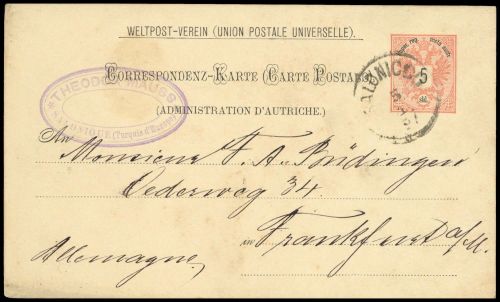 WELTPOST-VEREIN (UNION POSTALE UNIVERSELLE).
CORRESPONDENZ-KARTE (CARTE POSTALE)
5
(ADMINISTRATION D'AUTRICHE.)
THEODOR MAUSS
SALONIQUE (Turquie d'Europe)
SALONICCO
An Monsieur F. A.
Oederweg 34
in Frankfurt a/M.
Allemagne